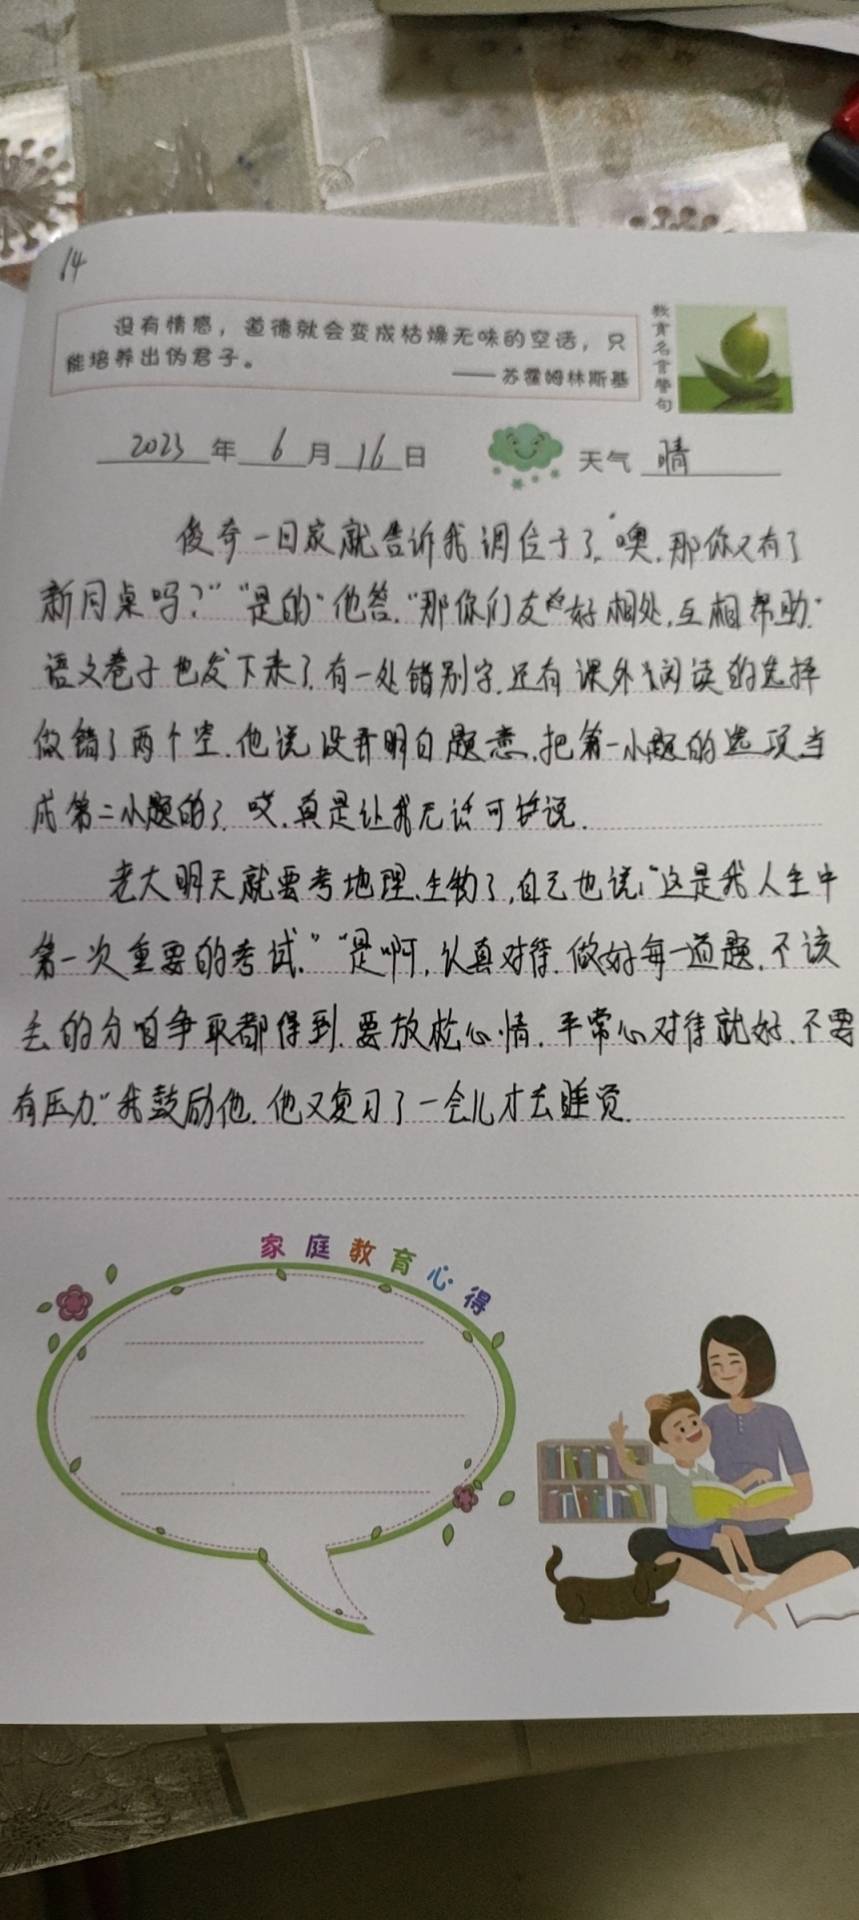 14
没有情感，道德就会变成枯燥无味的空话，只
能培养出伪君子。
——苏霍姆林斯基
教育名言警句
2023年6月16日 天气 晴
俊奇一日家就告诉我调位子了,“噢,那你又有了
新同桌吗?”“是的”他答.“那你们友好相处,互相帮助.”
语文卷子也发下来了,有一处错别字,还有课外阅读的选择
做错了两个空.他说没弄明白题意,把第一小题的选项当
成第二小题的了.哎,真是让我无话可说.
老大明天就要考地理、生物了,自己也说:“这是我人生中
第一次重要的考试.”“是啊,认真对待.做好每一道题,不该
丢的分咱争取都得到.要放松心情,平常心对待就好,不要
有压力”我鼓励他.他又复习了一会儿才去睡觉.
家庭教育心得